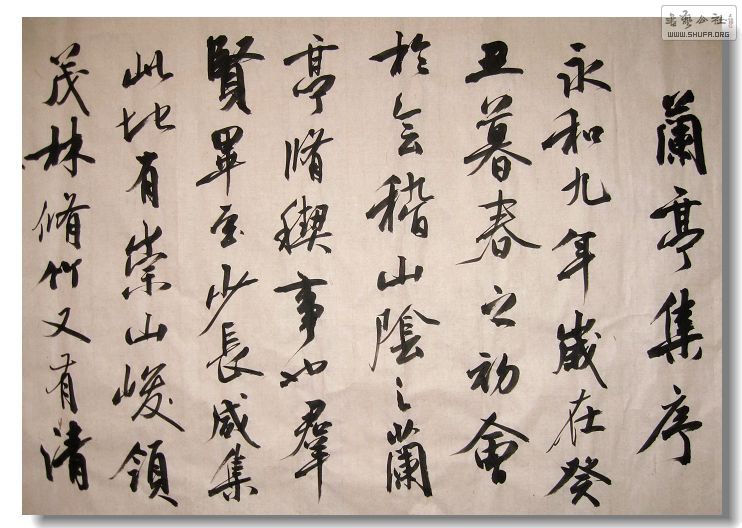 蘭亭集序
永和九年歲在癸
丑暮春之初會
於会稽山陰之蘭
亭脩稧事也羣
賢畢至少長咸集
此地有崇山峻領
茂林脩竹又有清
书艺公社
WWW.SHUFA.ORG